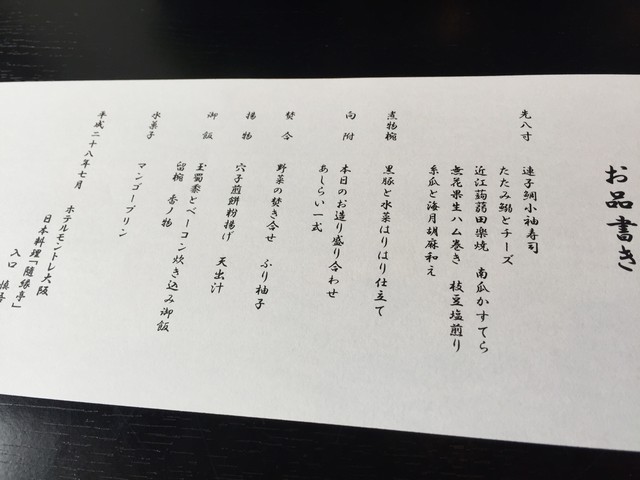 お品書き
先八寸
連子鯛小袖寿司
たたみ鰯とチーズ
近江蒟蒻田楽焼 南瓜かすてら
無花果生ハム巻き 枝豆塩煎り
糸瓜と海月胡麻和え
煮物椀
黒豚と水菜はりはり仕立て
向附
本日のお造り盛り合わせ
あしらい一式
焚合
野菜の焚き合せ ふり柚子
揚物
穴子煎餅粉揚げ 天出汁
御飯
玉蜀黍とベーコン炊き込み御飯
留椀 香ノ物
水菓子
マンゴープリン
平成二十八年七月
ホテルモントレ大阪
日本料理「隨縁亭」
入口